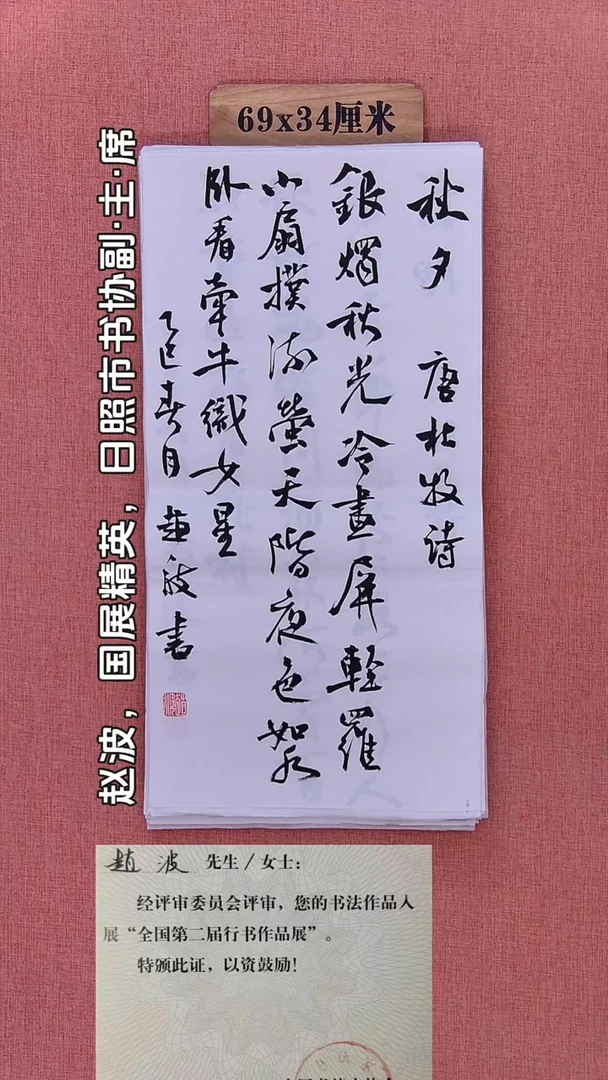 69x34厘米
赵波，国展精英，日照市书协副·主·席
秋夕 唐杜牧诗
銀燭秋光冷畫屏輕羅
小扇撲流螢天階夜色如水
卧看牽牛織女星
乙巳春月趙波書
趙波 先生/女士：
经评审委员会评审，您的书法作品入
展“全国第二届行书作品展”。
特颁此证，以资鼓励！